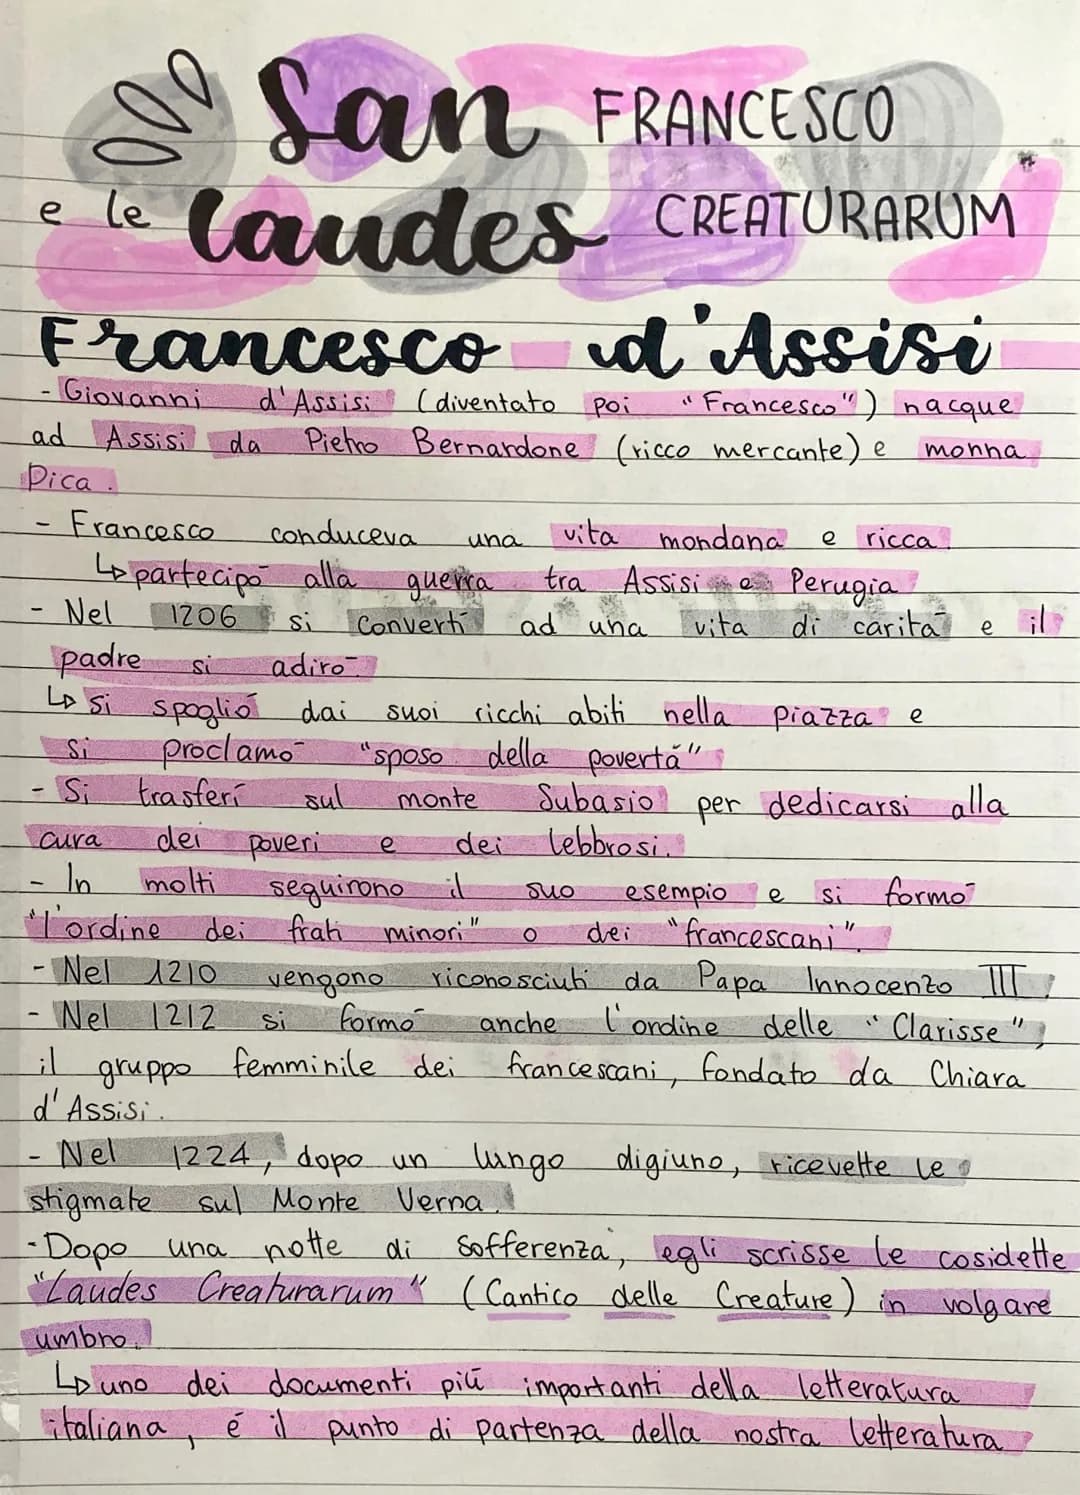 San FRANCESCO
e le laudes CREATURARUM
Francesco d'Assisi
- Giovanni d'Assisi (diventato poi "Francesco") nacque
ad Assisi da Pietro Bernardone (ricco mercante) e monna
Pica.
- Francesco conduceva una vita mondana e ricca.
↳ partecipò alla guerra tra Assisi e Perugia
- Nel 1206 si convertì ad una vita di carità e il
padre si adirò.
↳ Si spogliò dai suoi ricchi abiti nella piazza e
si proclamò "sposo della povertà"
- Si trasferì sul monte Subasio per dedicarsi alla
cura dei poveri e dei lebbrosi.
- In molti seguirono il suo esempio e si formò
"l'ordine dei frati minori" o dei "francescani".
- Nel 1210 vengono riconosciuti da Papa Innocenzo III;
- Nel 1212 si formò anche l'ordine delle "Clarisse",
il gruppo femminile dei francescani, fondato da Chiara
d'Assisi.
- Nel 1224, dopo un lungo digiuno, ricevette le
stigmate sul Monte Verna.
- Dopo una notte di sofferenza, egli scrisse le cosidette
"Laudes Creaturarum" (Cantico delle Creature) in volgare
umbro.
↳ uno dei documenti più importanti della letteratura
italiana, é il punto di partenza della nostra letteratura